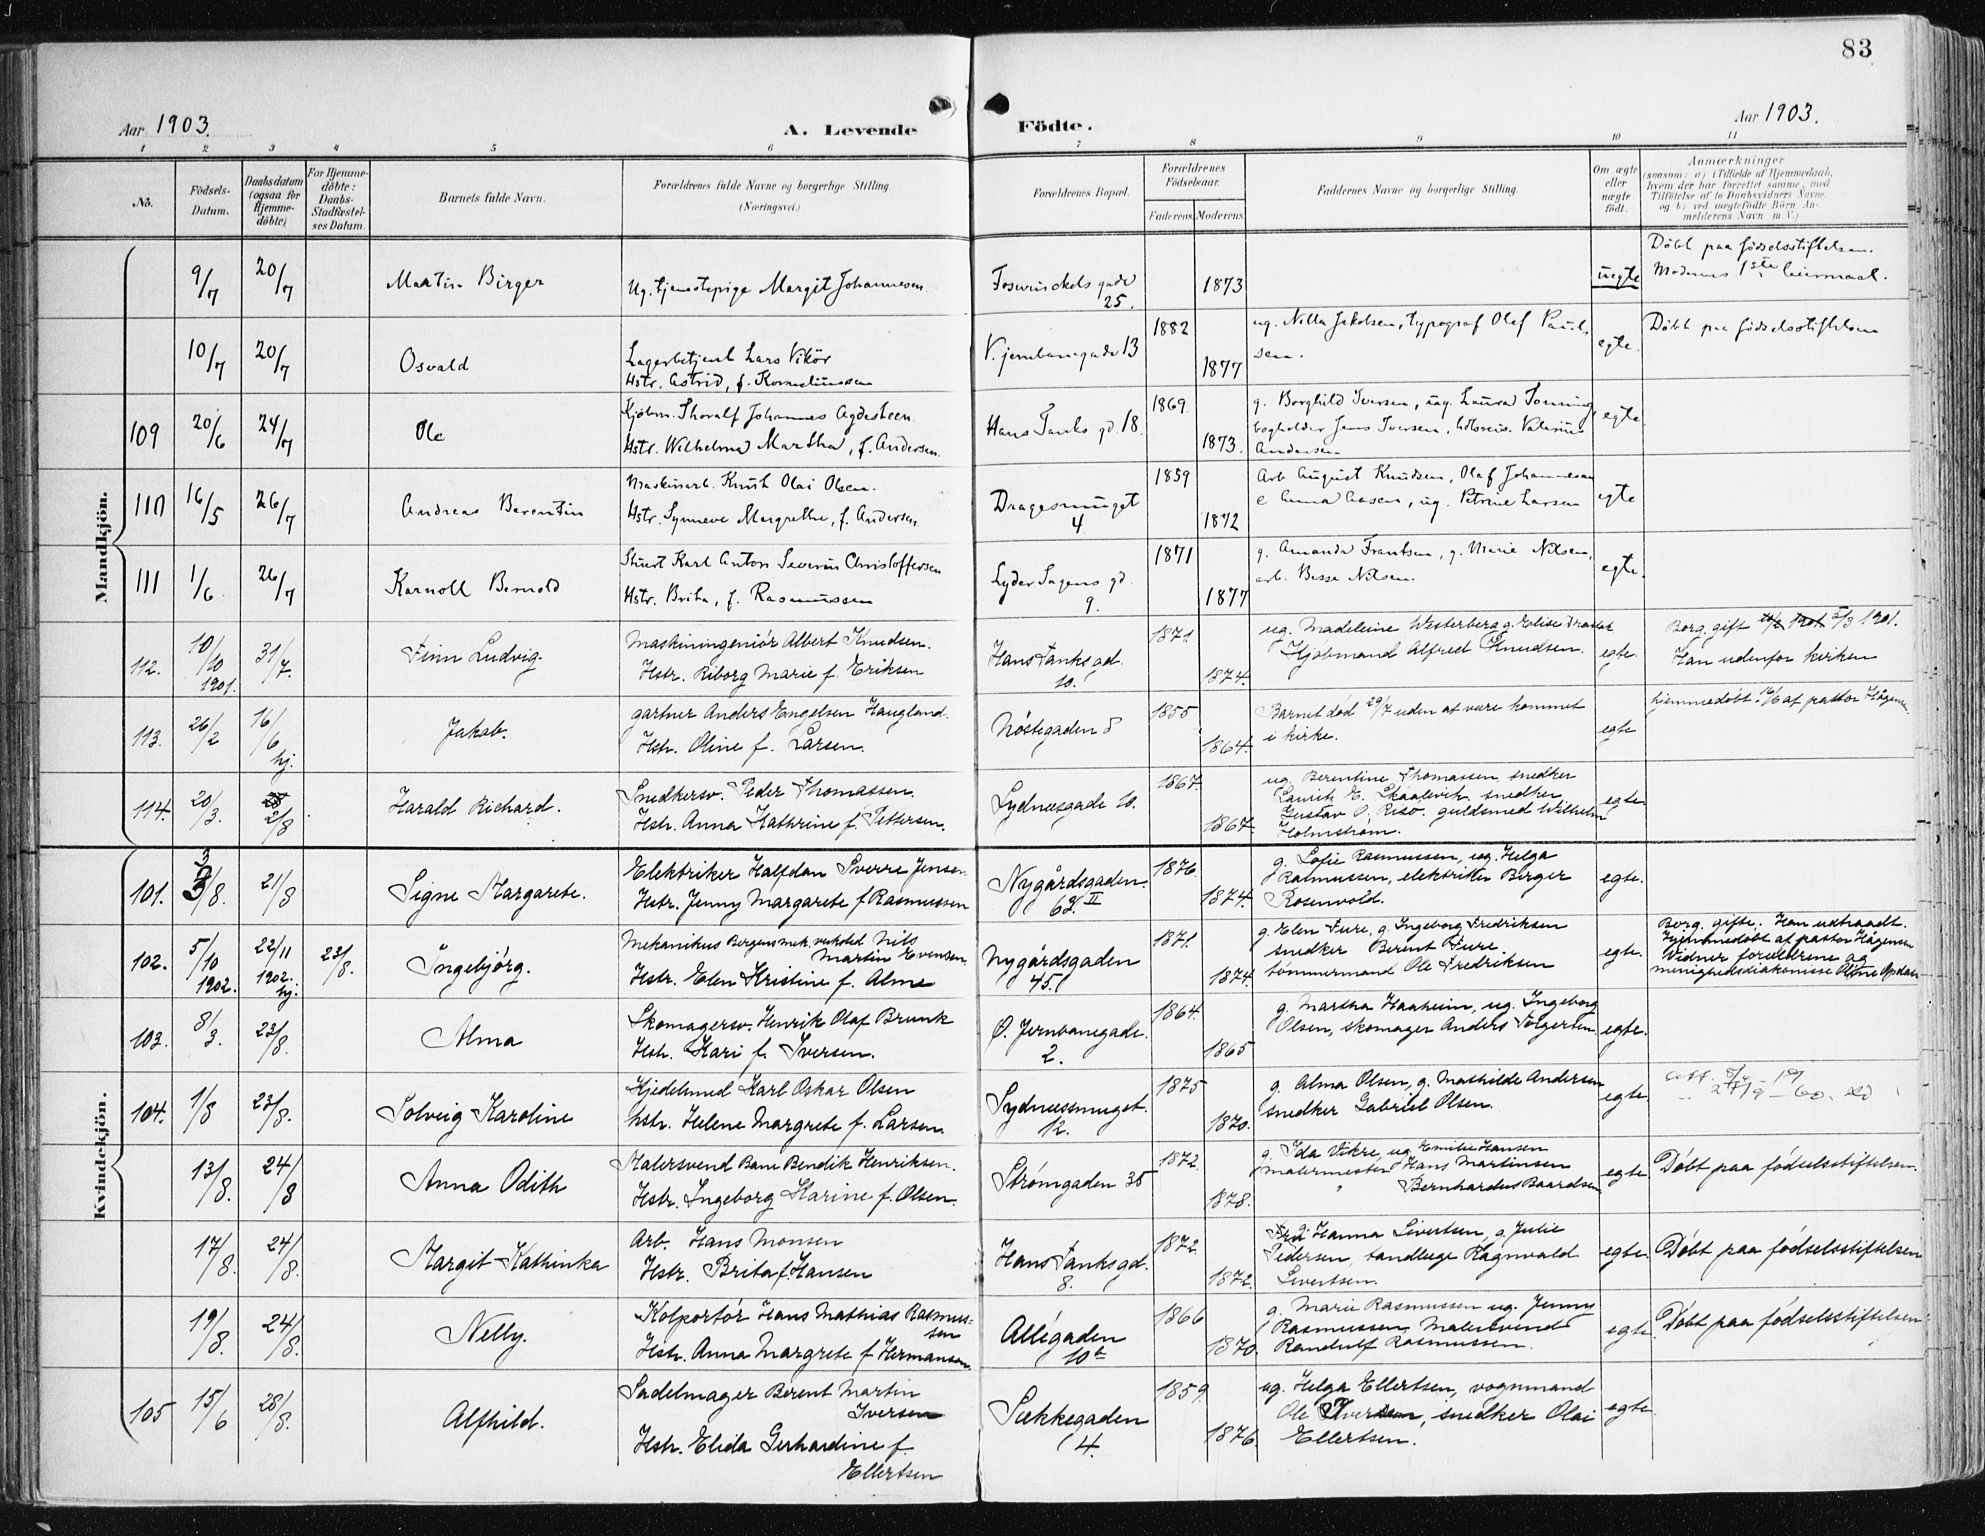 83
Aar 1903.
A. Levende
Födte.
Aar 1903.
1 2 3 4 5 6 7 8 9 10 11
No.
Födsels-
Datum.
Daabsdatum
(ogsaa for
Hjemme-
döbte)
For Hjemme-
döbte:
Daabs-
Stadfæstel-
ses Datum.
Barnets fulde Navn.
Forældrenes fulde Navne og borgerlige Stilling.
(Næringsvei.)
Forældrenes Bopæl.
Forældrenes
Födselsaar.
Faderens. Moderens.
Faddernes Navne og borgerlige Stilling.
Om ægte
eller
uægte
födt.
Anmærkninger
(saasom: a) i Tilfælde af Hjemmedaab,
hvem der har forrettet samme, med
Tilföielse af to Daabsvidners Navne.
og b) ved uægtefödte Börn An-
melderens Navn m. V.)
Mandkjön.
9/7 20/7 Martin Birger
Ug. tjenestepige Margit Johannesen.
25.
1873
uegte
Døbt paa fødselsstiftelsen.
Moderens 1ste leiermaal.
10/7 20/7 Osvald
Lagerbetjent Lars Vikør
Hstr. Astrid, f. Korneliussen
V. jernbanegade 13
1882
1877
ug. Nilla Jakobsen, typograf Olaf Paul-
sen.
egte.
Døbt paa fødselsstiftelsen
109 20/6 24/7 Ole
Kjøbm. Thoralf Johannes Agdesteen
Hstr. Wilhelma Martha, f. Andersen.
Hans Tanks gd. 18.
1869.
1873.
g. Borghild Iversen, ug. Laura Tonning,
bogholder Jens Iversen, Valerius
Andersen
egte.
110 16/5 26/7 Andreas Berentin
Maskinarb. Knut Olai Olsen.
Hstr. Synneve Margrethe, f. Andersen
Dragesmuget
4
1859
1872
Arb August Knudsen, Olaf Johannesen
e Anna Aasen, ug. Petrine Larsen
egte
111 1/6 26/7 Karnoll Bernold
Stuert Karl Anton Severin Christoffersen
Hstr. Brita, f. Rasmussen
Lyder Sagens gd.
9.
1871
1877
g. Amanda Frantsen, g. Marie Nilsen,
arb. Besse Nilsen.
egte.
112. 10/10 1901. 31/7. Finn Ludvig.
Maskiningeniør Albert Knudsen.
Hstr. Riborg Marie f. Eriksen
Hans Tanks gd.
10.
1871.
1874.
ug. Madeleine Westerberg g. Elise
Kjøbmand Alfred Knudsen.
egte.
Borg. gift 5/3 1901.
Han udenfor kirken
113. 26/2 16/6 hj. Jakob.
gartner Anders Engelsen Haugland.
Hstr. Oline f. Larsen.
Nøstegaden 8
1855
1864.
Barnet død 29/7 uden at være kommet
i kirke.
egte
hjemmedøbt 16/6 af pastor Hågensen
114. 20/3. 2/8 Harald Richard.
Snedkersv. Peder Thomassen.
Hstr. Anna Kathrine f. Pettersen.
Sydnesgade 10.
1867.
1867.
ug. Berentine Thomassen, snedker
Lauritz E. Skaalevik, snedker
Gustav O. Risø. guldsmed Wilhelm
Holmstrøm.
egte.
Kvindekjön.
101. 3/8. 21/8 Signe Margarete.
Elektriker Halfdan Sverre Jensen
Hstr. Jenny Margarete f Rasmussen
Nygårdsgaden.
1876
1874.
g. Sofie Rasmussen, ug. Helga
Rasmussen, elektriker Birger
Rosenvold.
egte.
102. 5/10 1902. 22/11 1902. hj. 23/8. Ingebjørg.
Mekanikus Bergens mek. verksted Nils
Martin Evensen.
Hstr. Elen Kristine f. Alme
Nygårdsgaden
45.
1871.
1874.
g. Elen Fure, g. Ingeborg Fredriksen
snedker Berent Fure.
tømmermand Ole Fredriksen
egte.
Borg. gifte. Han udtraadt.
Hjemmedøbt af pastor Hågensen
Vidner forældrene og
menighedsdiakonisse Oline Opdal
103. 8/3. 23/8. Alma
Skomagersv. Henrik Olaf Brunk
Hstr. Kari f. Iversen.
Ø. Jernbanegade.
2.
1864.
1865
g. Martha Haaheim, ug. Ingeborg
Olsen, skomager Anders Torgersen
egte.
104. 1/8 23/8. Solveig Karoline
Kjedelsmed Karl Oskar Olsen
hstr. Helene Margrete f. Larsen.
Sydnessmuget.
12.
1875
1870.
g. Alma Olsen, g. Mathilde Andersen
snedker Gabriel Olsen.
egte.
13/8. 24/8 Anna Odith
Malersvend Bane Bendik Henriksen.
Hstr. Ingeborg Karine f. Olsen.
Strømgaden 35
1872.
1878.
g. Ida Vikre, ug. Emilie Hansen
malermester Hans Martinsen
" Bernhardus Baardsen
egte
Døbt paa fødselsstiftelsen.
17/8. 24/8. Margit Kathinka
Arb. Hans Monsen
Hstr. Brita f. Hansen
Hans Tanks gd.
8.
1872.
1872.
g. Hanna Sivertsen, g. Julie
Pedersen, tandlæge Ragnvald
Sivertsen.
egte.
Døbt paa fødselsstiftelsen
19/8. 24/8. Nelly.
Kolportør Hans Mathias Rasmus-
sen
Hstr. Anna Margrete f Hermansen.
Allégaden
10b
1866
1870.
g. Marie Rasmussen ug. Jenny
Rasmussen, Malersvend
Randulf Rasmussen.
egte.
Døbt paa fødselsstiftelsen.
105 15/6 28/8. Alfhild.
Sadelmager Berent Martin
Iversen
Hstr. Elida Gerhardine f.
Ellertsen
Sækkegaden
14.
1859.
1876.
ug. Helga Ellertsen, vognmand
Ole Iversen, snedker Olai
Ellertsen.
egte.